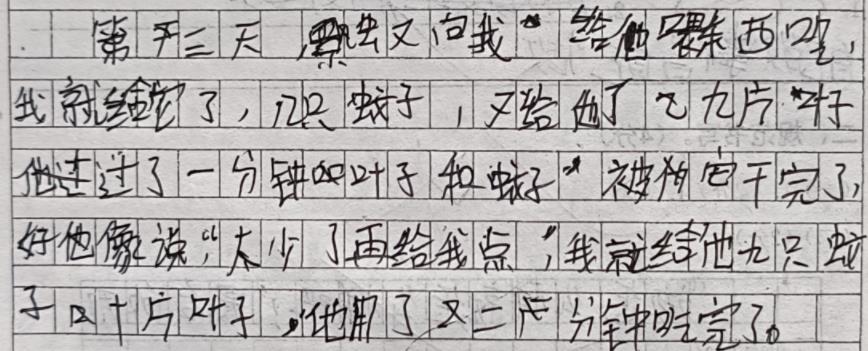 第二天,又向我“给他东西吃,
我就给它了,几只蚊子,又给他了七九片叶子
他过了一分钟叶子和蚊子”被它干完了,
好他像说“太少了再给我点”,我就给他九只蚊
子十片叶子,他用了又二分钟吃完了。